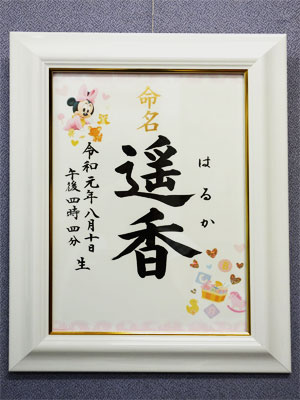 命名
はるか
遥香
令和元年八月十日
午後四時四分
生